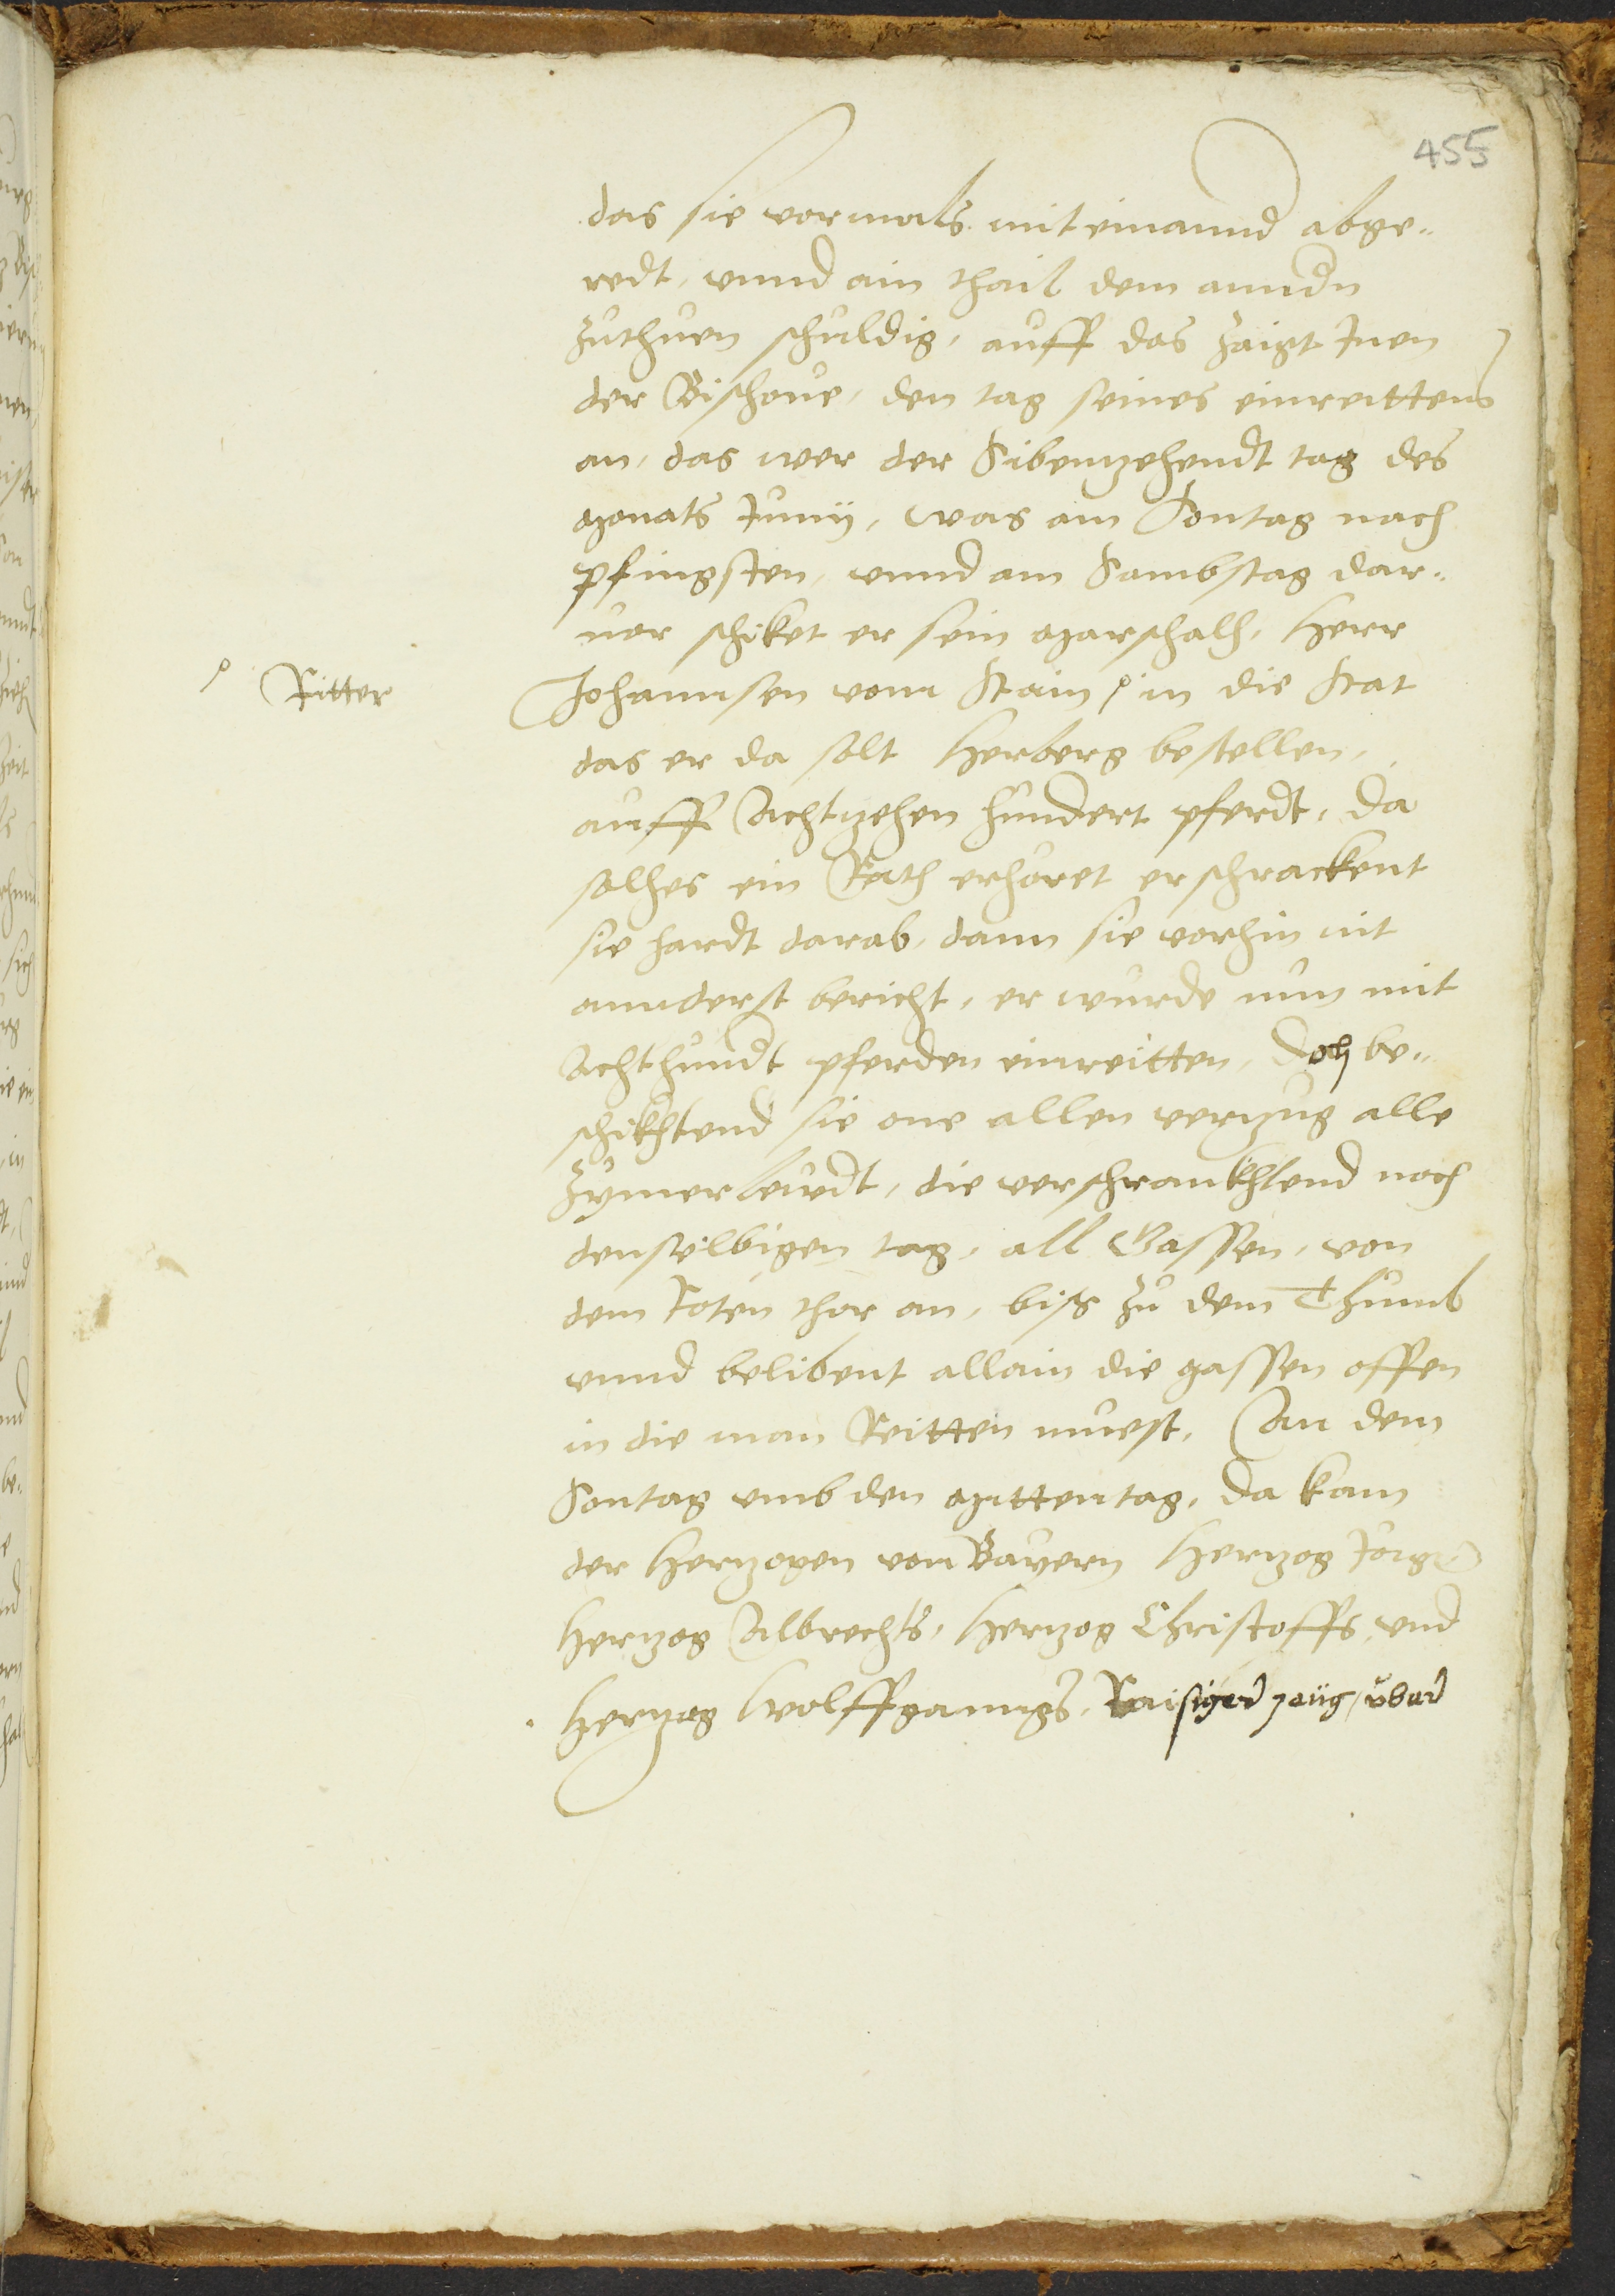 455
das sie vormals mit einannd abge¬
redt, vnnd ain thail dem anndn
zuthuen schuldig, auff das zaigt Inen
der Bischoue, den tag seines einreittens
an, das wer der Sibenzehendt tag des
Monats Junij, was am Sontag nach
pfingsten, vnnd am Sambstag dar¬
uor schiket er sein Marschalh, Herr
Johannsen vom Stain in die Stat
Ritter
das er da solt Herberg bestellen,
auff Achtzehen hundert pferdt, da
solhes ein Rath erhöret erschrackent
sie hardt darab, dann sie vorhin nit
annderst bericht, er wurde nun mit
Achthundt pferden einreitten, Doch be¬
schikhtend sie one allen verzug alle
Zymerleudt, die verschrankhtend noch
denselbigen tag, all Gassen, von
dem Roten thor an, biß zu dem Thumb
vnnd belibent allain die gassen offen
in die man Reitten muest, An dem
Sontag vmb den Mittentag, da kam
der Hertzogen von Bayern Hertzog Jorgen
Hertzog Albrechts, Hertzog Christoffs, vnd
Hertzog Wolffganngs, Raisiger zeüg, über